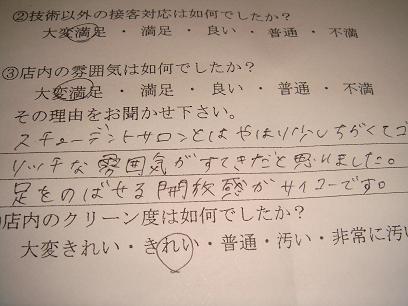 ②技術以外の接客対応は如何でしたか？
大変満足 ・ 満足 ・ 良い ・ 普通 ・ 不満
③店内の雰囲気は如何でしたか？
大変満足 ・ 満足 ・ 良い ・ 普通 ・ 不満
その理由をお聞かせ下さい。
スチューデントサロンとはやはり少しちがくてゴ
リッチな雰囲気がすてきだと思いました。
足をのばせる開放感がサイコーです。
店内のクリーン度は如何でしたか？
大変きれい・きれい・普通・汚い・非常に汚い